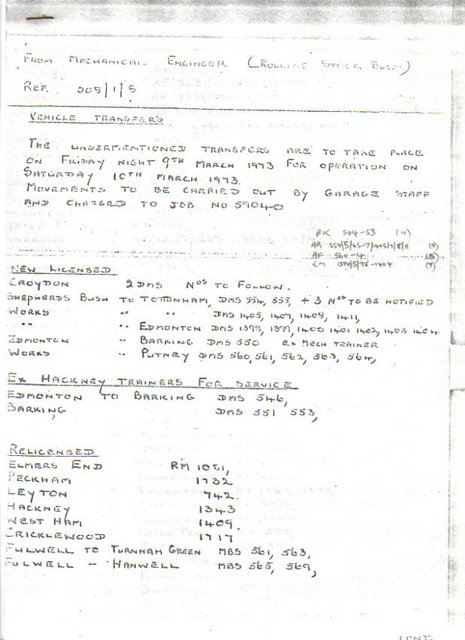 FROM MECHANICAL ENGINEER (ROLLING STOCK BUSES)
REF. 208/1/8
VEHICLE TRANSFERS
THE UNDERMENTIONED TRANSFERS ARE TO TAKE PLACE
ON FRIDAY NIGHT 9TH MARCH 1973 FOR OPERATION ON
SATURDAY 10TH MARCH 1973.
MOVEMENTS TO BE CARRIED OUT BY GARAGE STAFF
AND CHARGED TO JOB NO 59040
BK 544-53 (10)
AF 560-4
NEW LICENSED
CROYDON 2 DMS NOS TO FOLLOW.
SHEPHERDS BUSH TO TOTTENHAM, DMS 554, 555, + 3 NOS TO BE NOTIFIED
WORKS " " DMS 1405, 1407, 1408, 1411,
" " EDMONTON DMS 1398, 1399, 1400 1401 1402, 1403 1404
EDMONTON " BARKING DMS 550 EX MECH TRAINER
WORKS " PUTNEY DMS 560, 561, 562, 563, 564,
EX HACKNEY TRAINERS FOR SERVICE
EDMONTON TO BARKING DMS 546,
BARKING DMS 551 553,
RELICENSED
ELMERS END RM 1051,
PECKHAM 1732
LEYTON 742.
HACKNEY 1343
WEST HAM 1409.
CRICKLEWOOD 1717
FULWELL TO TURNHAM GREEN MBS 561, 563,
FULWELL " HANWELL MBS 565, 569,